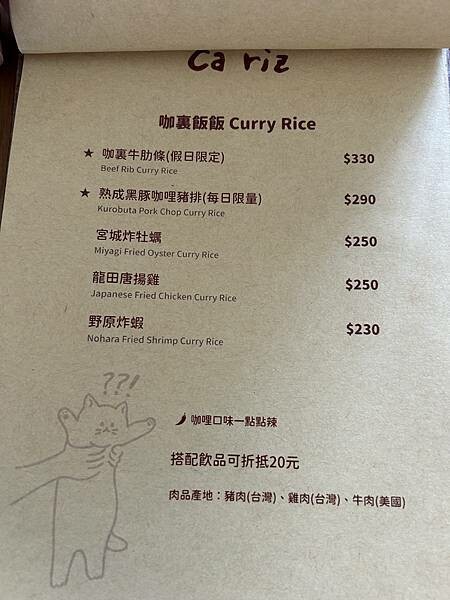 Ca riz
咖裏飯飯 Curry Rice
★ 咖裏牛肋條(假日限定) $330
Beef Rib Curry Rice
★ 熟成黑豚咖哩豬排(每日限量) $290
Kurobuta Pork Chop Curry Rice
宮城炸牡蠣 $250
Miyagi Fried Oyster Curry Rice
龍田唐揚雞 $250
Japanese Fried Chicken Curry Rice
野原炸蝦 $230
Nohara Fried Shrimp Curry Rice
??!
咖哩口味一點點辣
搭配飲品可折抵20元
肉品產地：豬肉(台灣)、雞肉(台灣)、牛肉(美國)